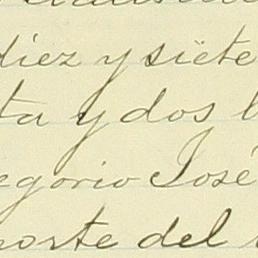 diez y siete
ta y dos
egorio José
norte del